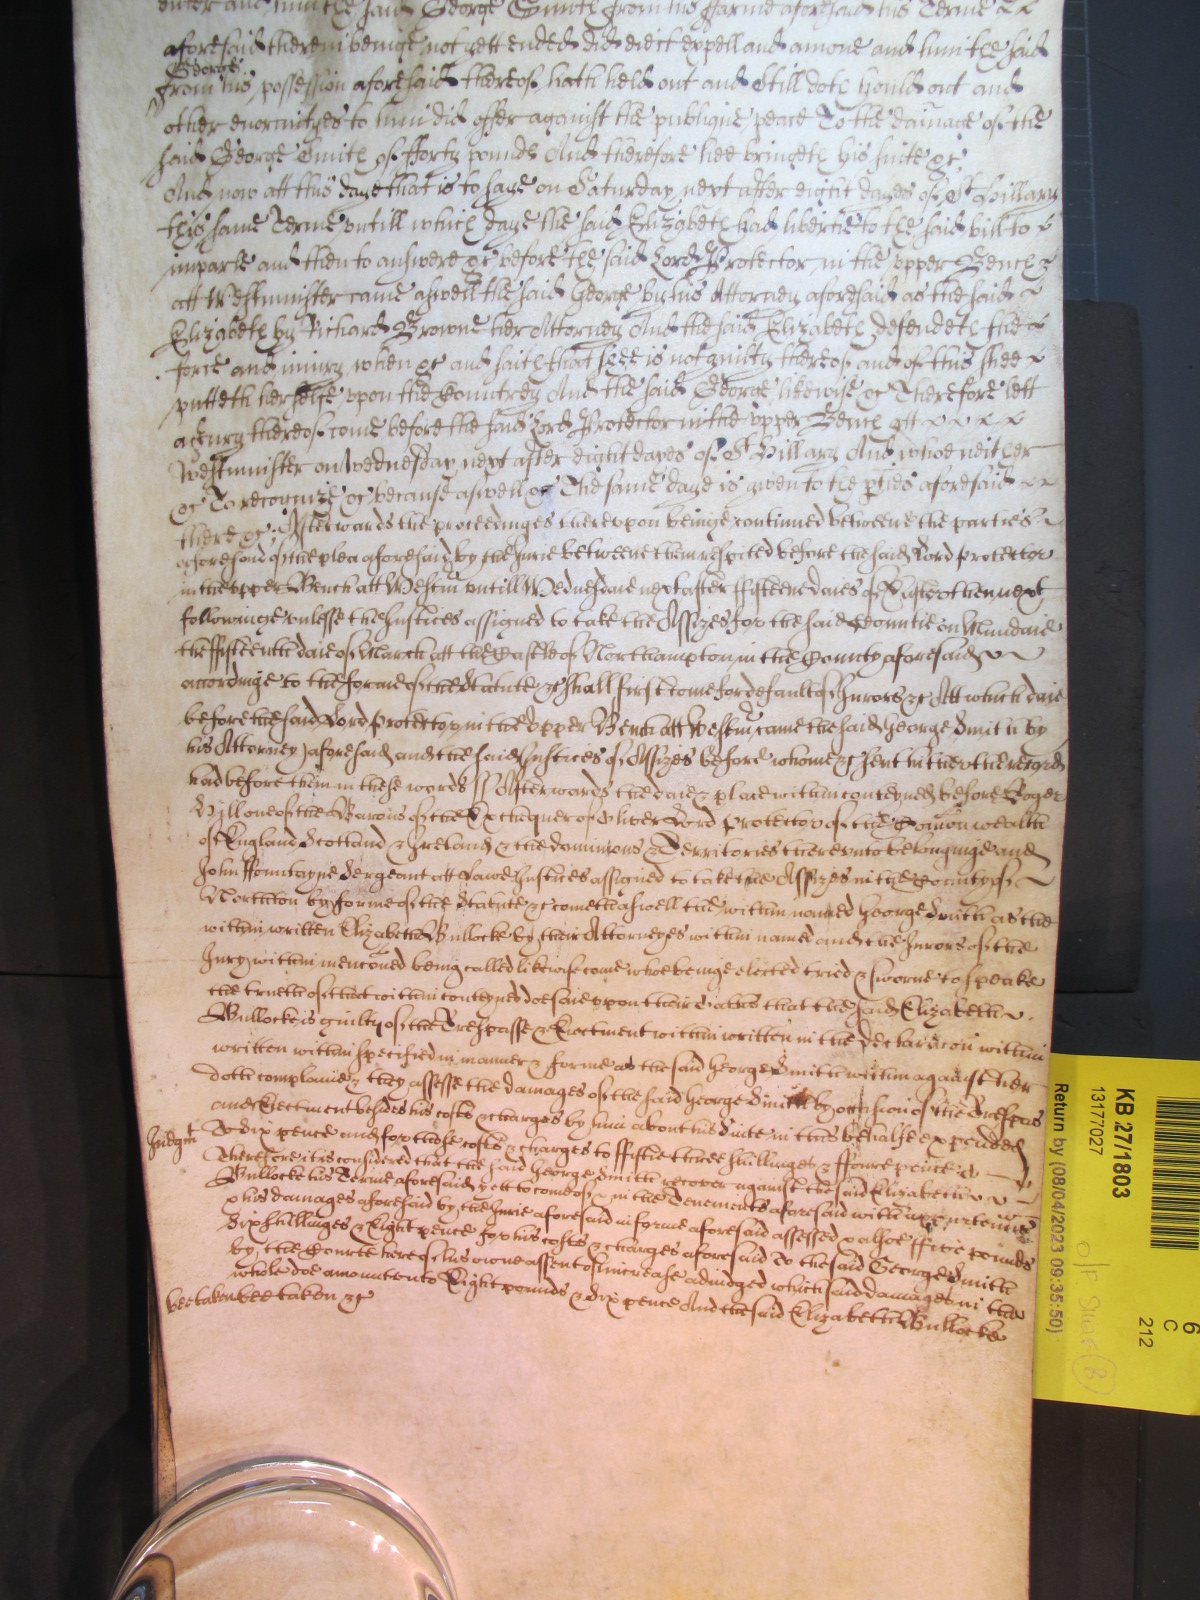 enter and him the said George Smith from his Farme aforesaid his Terme
aforesaid therein beinge not yett ended did eiect expell and amove and him the said
George
from his possession aforesaid thereof hath held out and Still doth hould out and
other enormityes to him did offer against the publique peace To the damage of the
said George Smith of fforty pounds And therefore hee bringeth his suite &c
And now att this daye that is to saye on Saturday next after eight dayes of St Hillary
this same Terme untill which daye the said Elizabeth had libertie to the said bill to
imparle and then to answere &c before the said Lord Protector in the upper Bench
att Westminster came aswell the said George by his Attorney aforesaid as the said
Elizabeth by Richard Browne her Attorney And the said Elizabeth defendeth the
force and iniury when &c and saith that shee is not guilty thereof and of this shee
putteth herselfe upon the Countrey And the said George likewise &c Therefore lett
a Jury thereof come before the said Lord Protector in the upper Bench att
Westminster on Wednesday next after eight dayes of St Hillary And whoe neither
&c To recognize &c because aswell &c The same daye is given to the pties aforesaid
there &c Afterwards the proceedinges thereupon beinge continued betweene the parties
aforesaid of the plea aforesaid by the Jurie betweene them respited before the said Lord Protector
in the upper Bench att Westm untill Wednesdaie next after ffifteene daies of Easter then next
followinge unlesse the Justices assigned to take the Assizes for the said Countie on Mundaie
the ffifteenth daie of March att the Castle of Northampton in the County aforesaid
accordinge to the forme of the Statute &c shall first come for default of Jurors &c Att which daie
before the said Lord Protector in the upper Bench att Westm came the said George Smith by
his Attorney aforesaid and the said Justices of Assizes before whome &c sent hither their record
had before them in these words ss Afterwards the daie & place within conteyned before Roger
Hill one of the Barons of the Exchequer of Oliver Lord Protector of the Comon wealth
of England Scotland & Ireland & the dominions & Territories thereunto belonginge and
John ffountayne Sergeant att Lawe Justices assigned to take the Assizes in the County of
Northton by forme of the Statute &c cometh aswell the within named George Smith as the
within written Elizabeth Bullocke by their Attorneyes within named and the Jurors of the
Jury within menconed being called likewise come whoe beinge elected tried & sworne to speake
the trueth of that within conteyned doe saie upon their oathes that the said Elizabeth
Bullocke is guilty of the Trespasse & Eiectment within written in the declaracon within
written within specified in manner & forme as the said George Smith within against her
doth complaine & they assesse the damages of the said George Smith by occasion of the Trespas
and Eiectment besides his costs & charges by him about his Suite in this behalfe expended
Judgmt
to Six pence and for those costs & charges to ffiftie three shillinges & ffoure pence
Therefore it is considered that the said George Smith recover against the said Elizabeth
Bullocke his Terme aforesaid yett to come of & in the Tenements aforesaid with appurtenncs
& his damages aforesaid by the Jurie aforesaid in forme aforesaid assessed & alsoe ffive pounds
Six shillinges & Eight pence for his costs & charges aforesaid To the said George Smith
by the Courte here of his owne assent of increase adiudged which said damages in the
whole doe amount unto Eight pounds & Six pence And the said Elizabeth Bullocke
bee taken bee taken &c
KB 27/1803
13177027
Return by (08/04/2023 09:35:50)
6
C
212